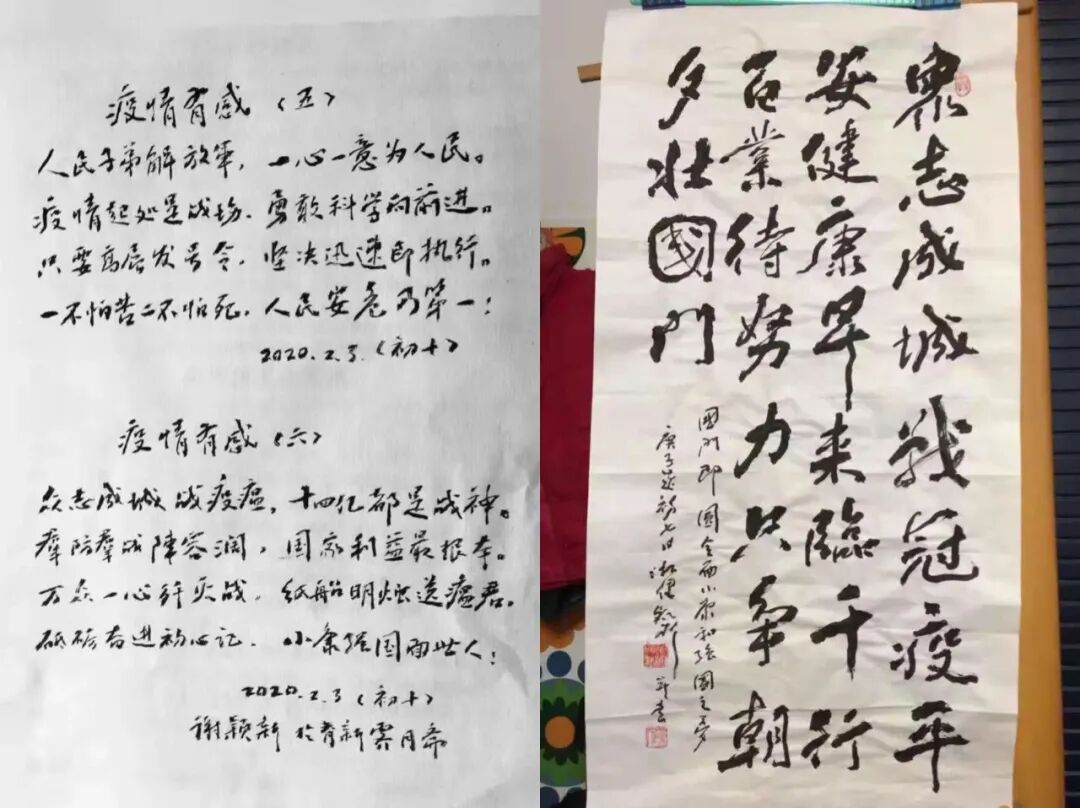 疫情有感（五）
人民子弟解放军，一心一意为人民。
疫情起处是战场，勇敢科学向前进。
只要高层发号令，坚决迅速即执行。
一不怕苦二不怕死，人民安危乃第一！
2020.2.3（初十）
疫情有感（六）
众志成城战疫瘟，十四亿都是战神。
群防群战阵容阔，国家利益最根本。
万众一心歼灭战，纸船明烛送瘟君。
砥砺奋进初心记，小康强国雨此人！
2020.2.3（初十）
谢颖新 於青新霁月斋
眾志成城戰冠疫平
安健康早来臨千行
百業待努力只争朝
夕壯國門
國門即國全面小康和強國之夢
庚子歲初七日
并書